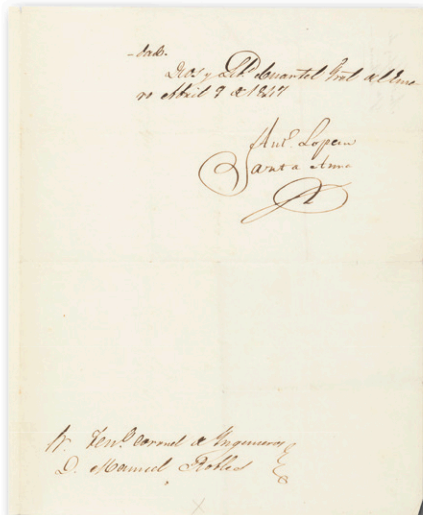 -dad.
Dios y Lib.d Cuartel Gral. del Ence
ro Abril 9 de 1847
Ant.o Lopez de
Santa Anna
Sr. Ten.te Coronel de Ingenieros
D. Manuel Robles